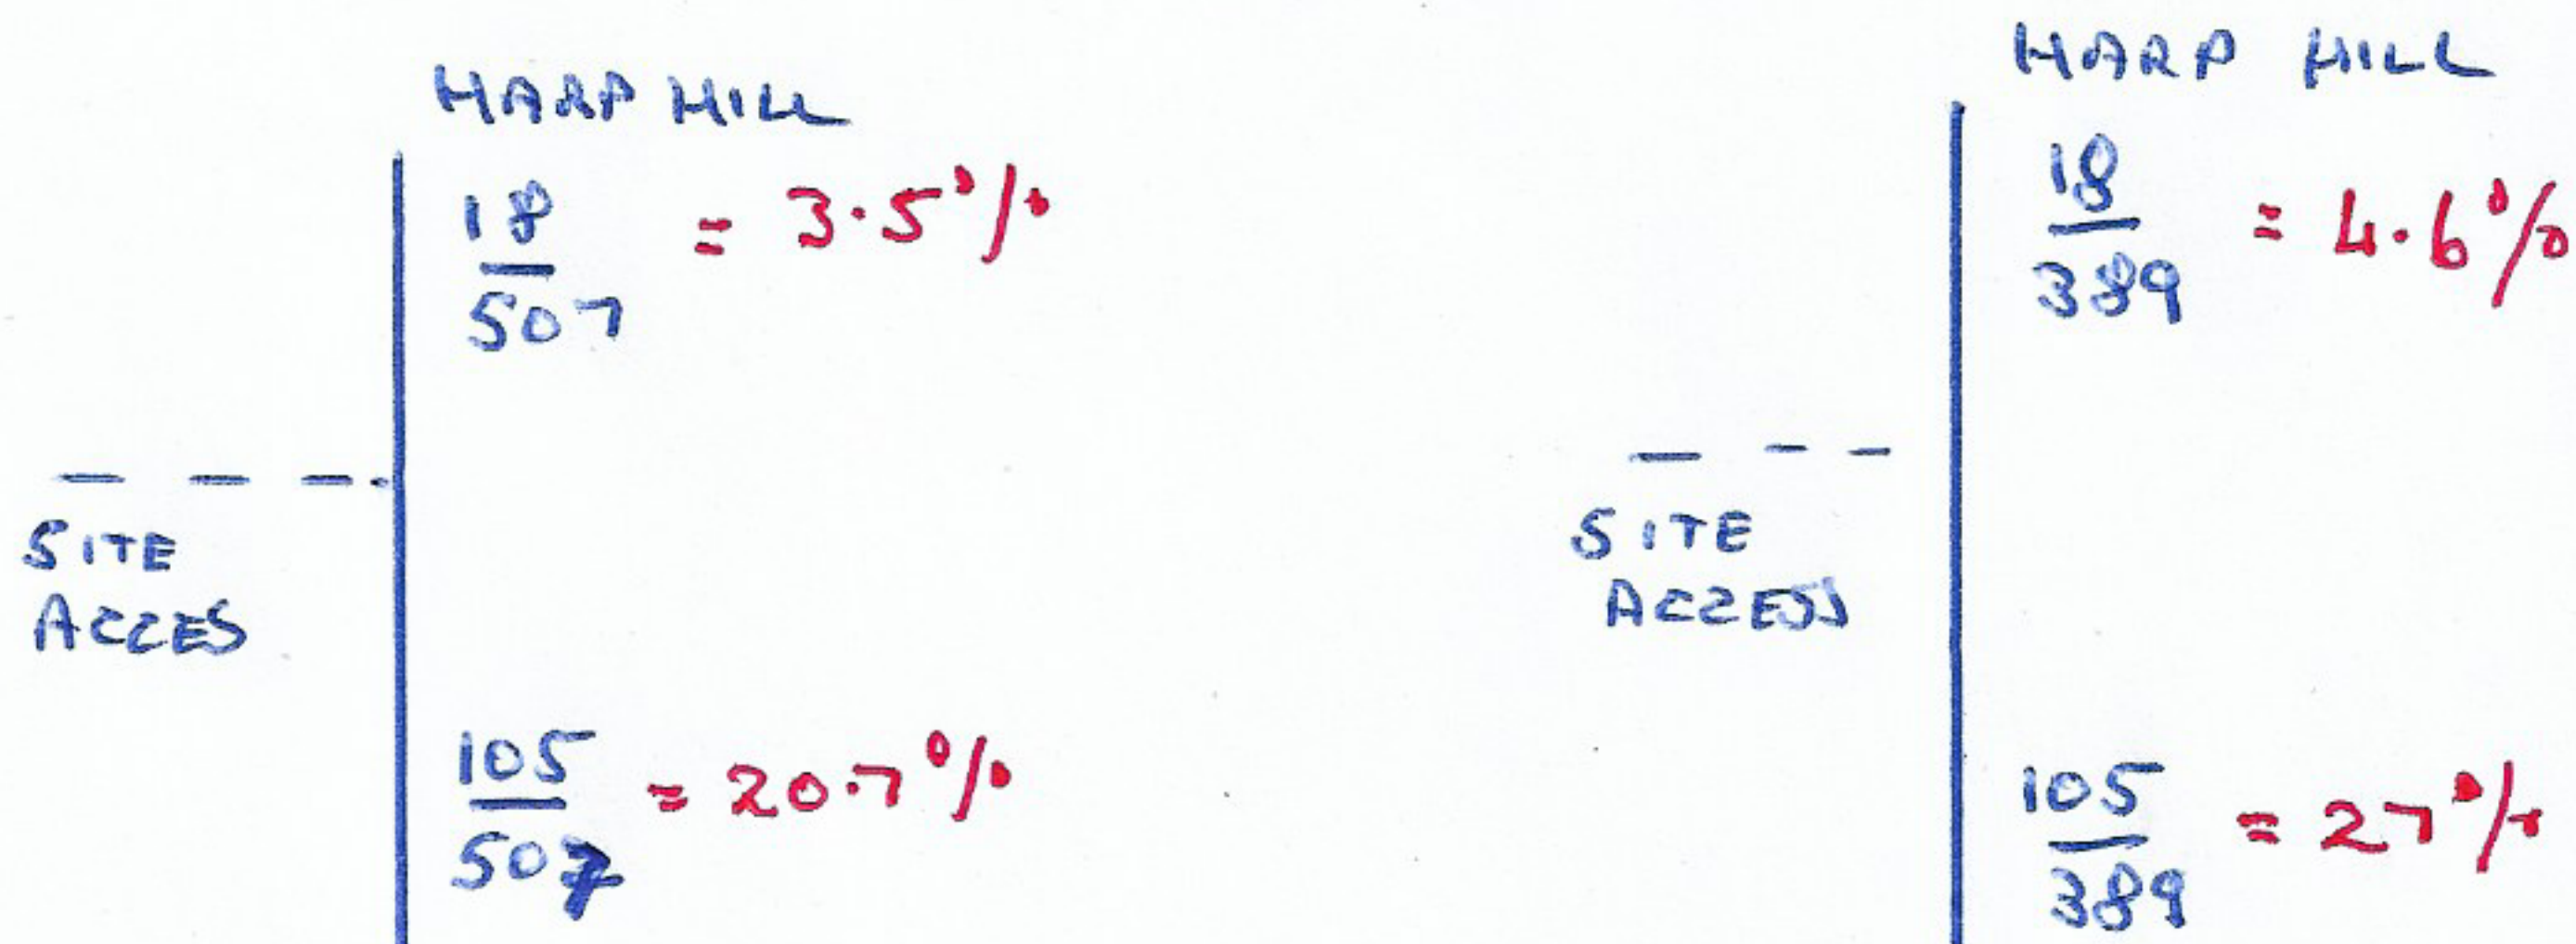 HARP HILL
18
507
= 3.5%
SITE
ACCES
105
507
= 20.7%
HARP HILL
18
389
= 4.6%
SITE
ACCESS
105
389
= 27%